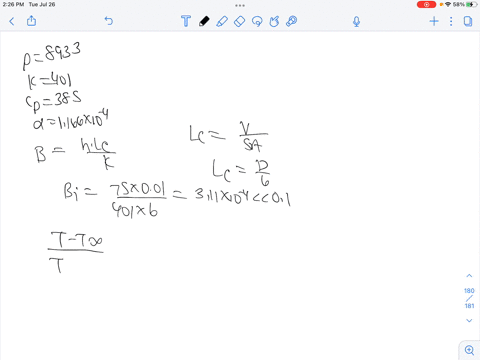 2:26 PM Tue Jul 26
58%
ρ=8933
K=401
Cp=385
α=1.166×10^-4
B = h·Lc/K
Lc = V/SA
Lc = D/6
Bi = 75×0.01/401×6 = 3.11×10^-4 << 0.1
T-T∞/T
180
/
181